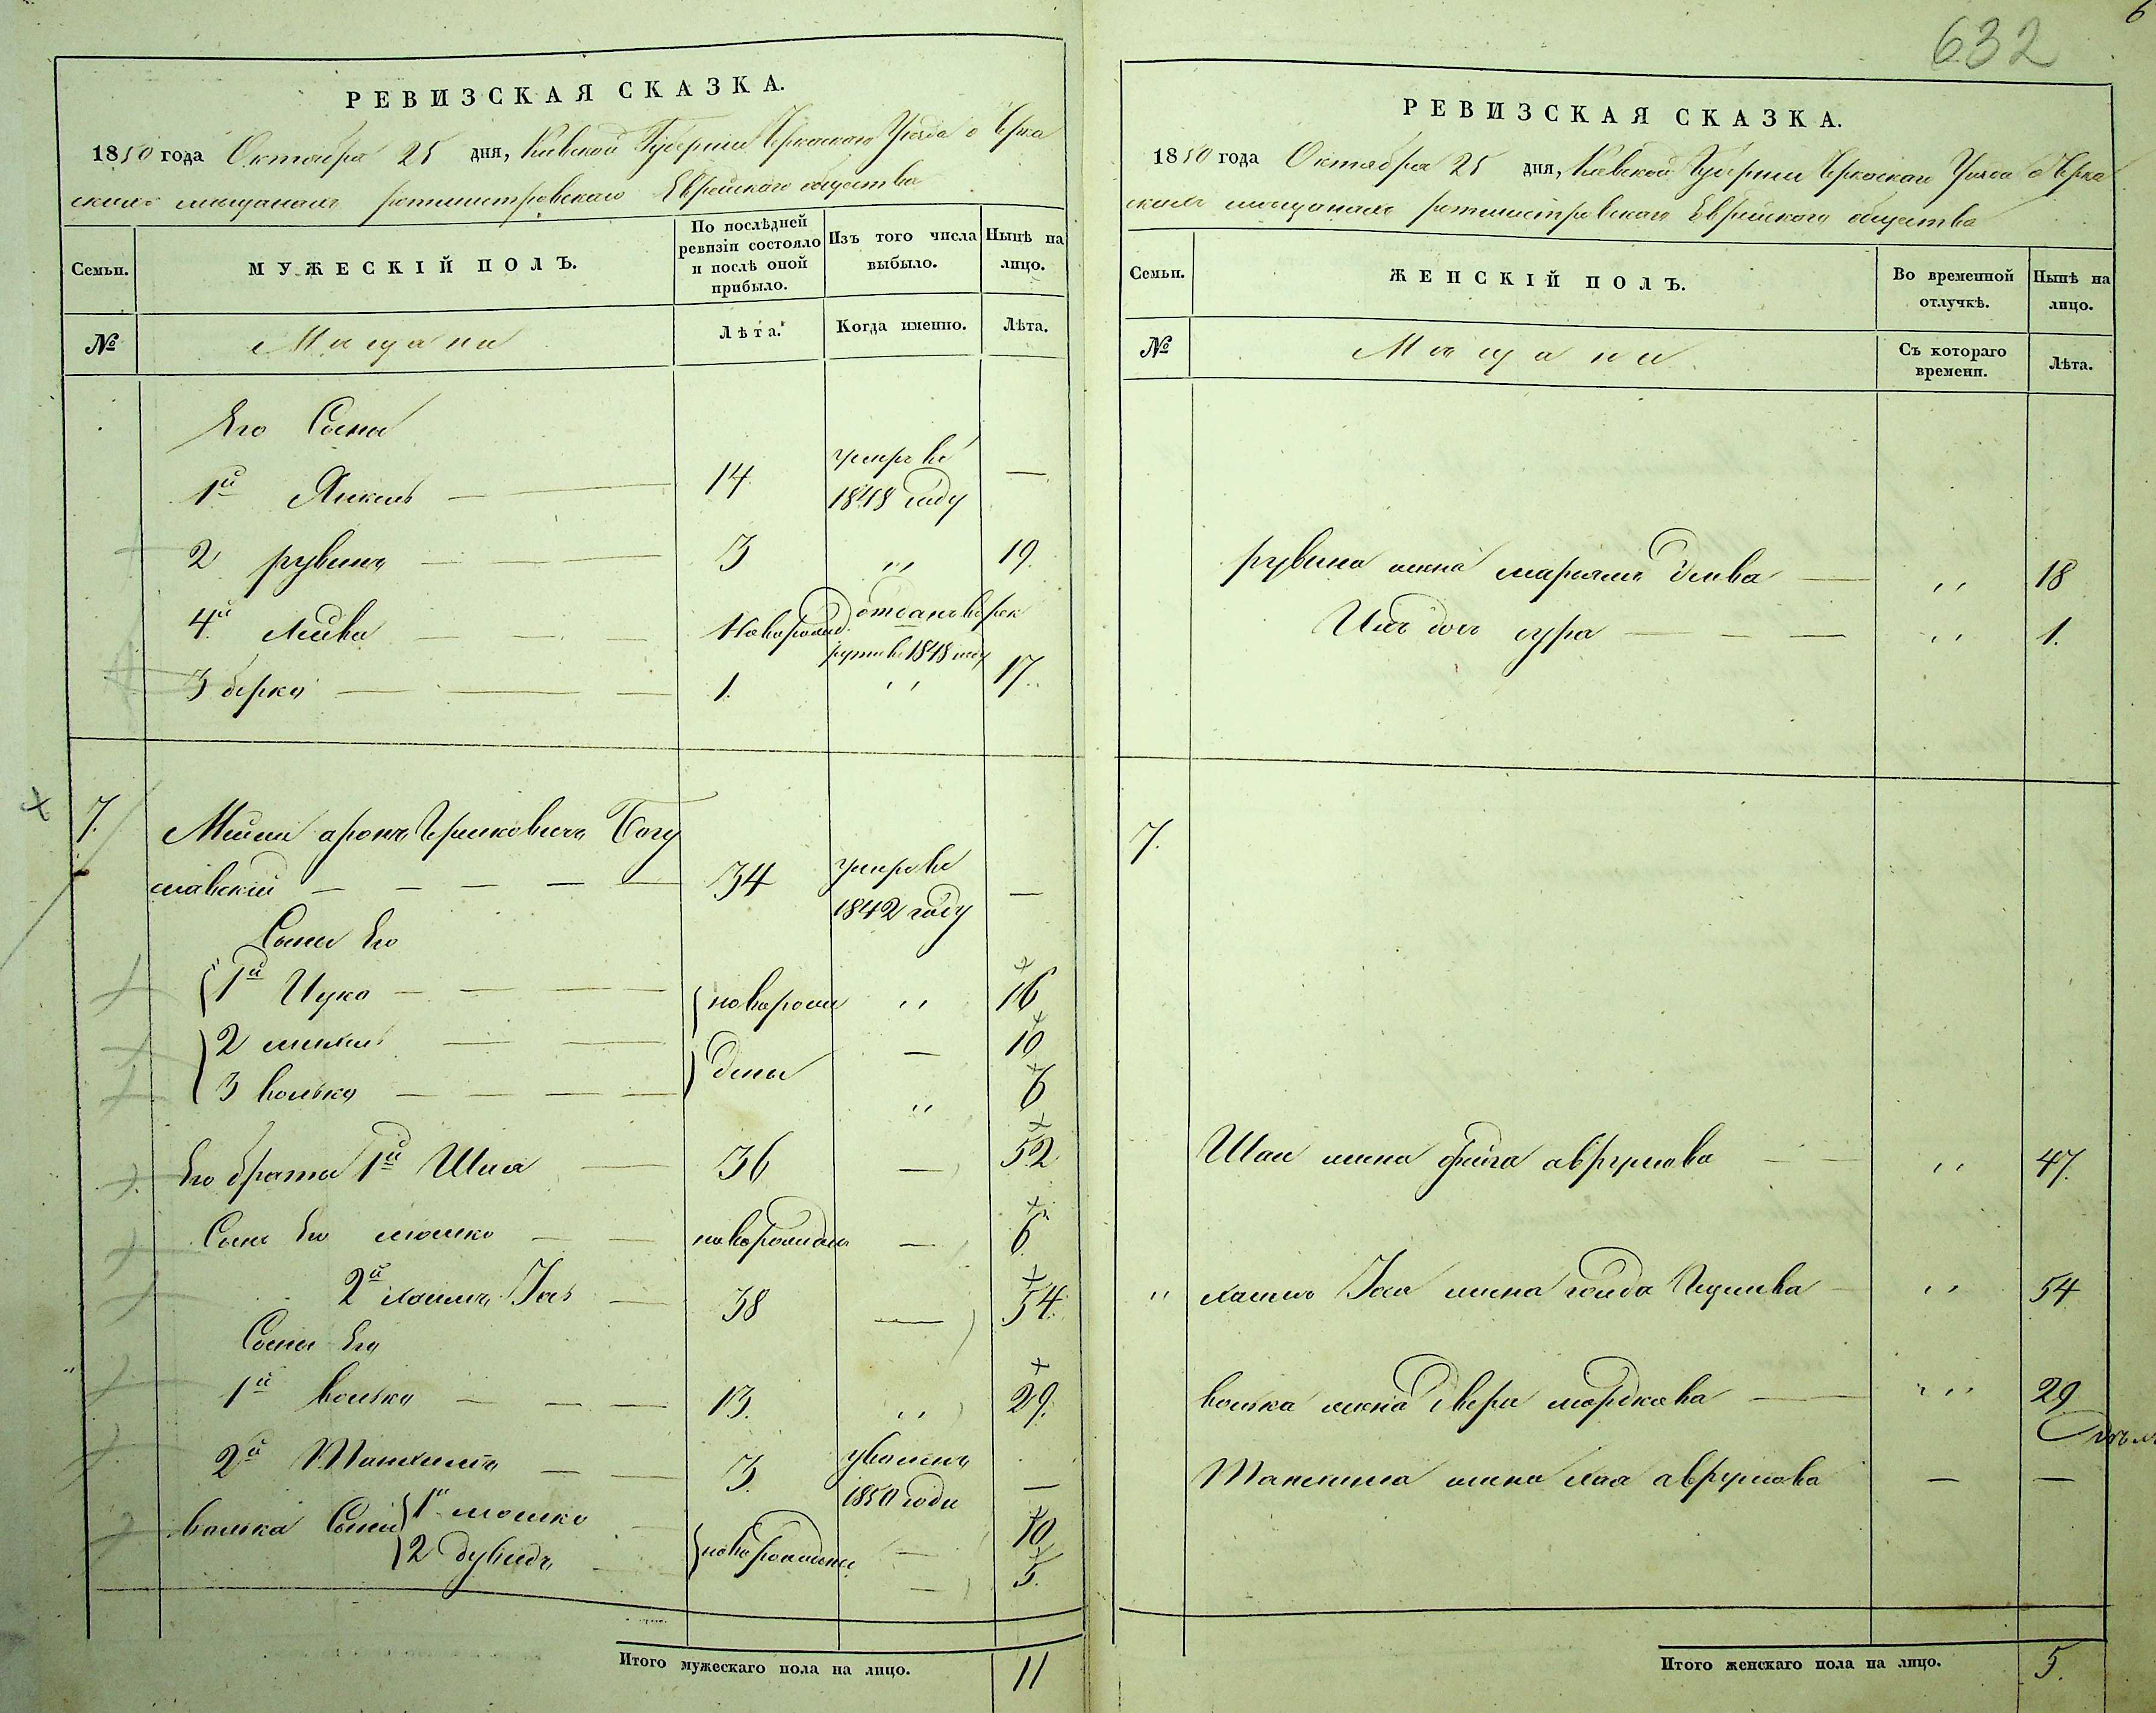 632
6
РЕВИЗСКАЯ СКАЗКА.
1850 года Октября 25 дня, Киевской Губернии Черкаскаго Уезда о Черка
скихъ мещанахъ ротмистровскаго Еврейскаго общества
Семьи.
МУЖЕСКІЙ ПОЛЪ.
По послѣдней ревизіи состояло и послѣ оной прибыло.
Изъ того числа выбыло.
Нынѣ на лицо.
№
Мещане
Лѣта.
Когда именно.
Лѣта.
Его Сыны
1й Янкель 14 умеръ въ 1848 году —
2 рувинъ 3 " 19.
4й Лейба Новорожд. отданъ въ рек
рути въ 1848 году
3 берко 1. " 17.
7. аронъ Гершковичъ Богу
славский 34 умеръ въ 1842 году —
Сыны Его
1й Ицко новорож " 16
2 михель дены — 10
3 волько " 6
Его братья 1й Шая 36 — 52
Сынъ Его мошко новорожденъ — 6
2й хаимъ Іось 38 — 54.
Сыны Его
1й волько 13. " 29.
2й Танхимъ 3. уволенъ 1850 года —
волька Сыны 1й мошко новорождены — 10
2 дувидъ — 5.
Итого мужескаго пола на лицо. 11
РЕВИЗСКАЯ СКАЗКА.
1850 года Октября 25 дня, Киевской Губернии Черкаскаго Уезда о Черка
скихъ мещанахъ ротмистровскаго Еврейскаго общества
Семьи.
ЖЕНСКІЙ ПОЛЪ.
Во временной отлучкѣ.
Нынѣ на лицо.
№
Мещане
Съ котораго времени.
Лѣта.
рувина жена марьямъ " 18
Ихъ дочь сура " 1.
7.
Шаи жена фейга аврумова " 47.
" хаима Іося жена голда Ицкова " 54
волька жена двера мордкова " 29
Танхима жена хая аврумова — —
Итого женскаго пола на лицо. 5.